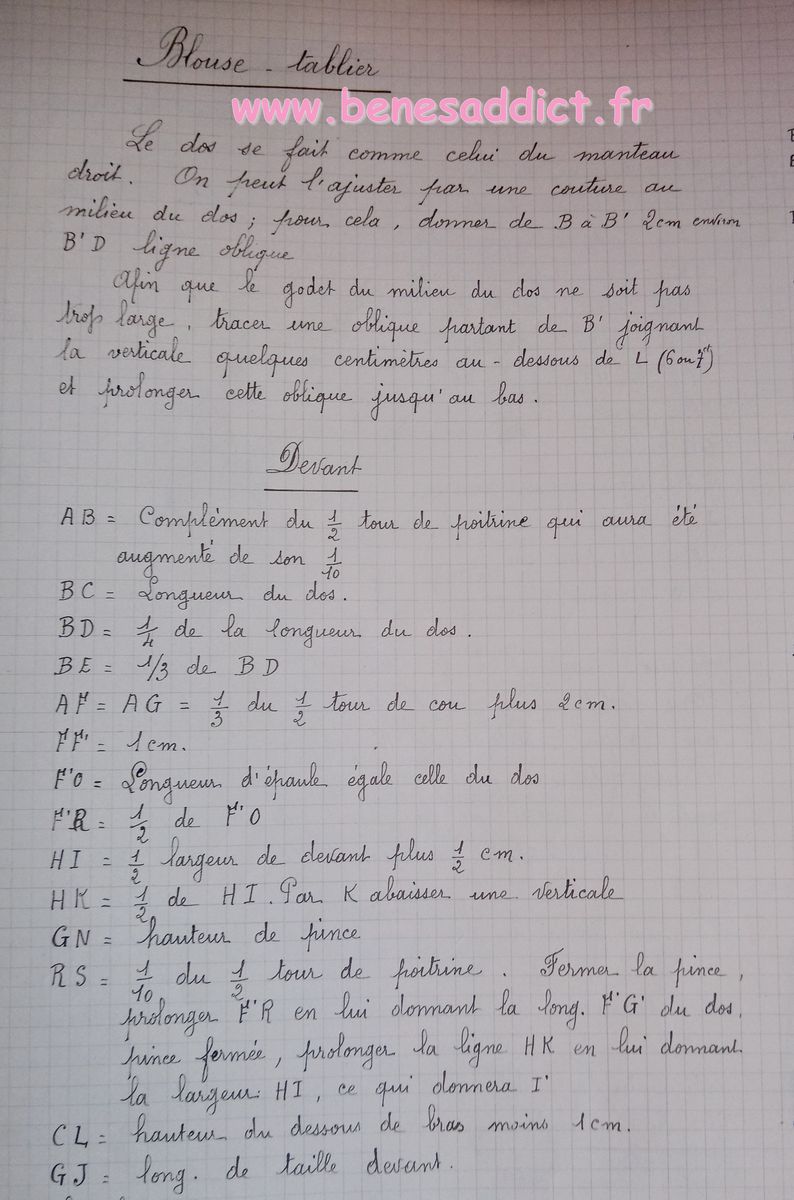 Blouse - tablier
www.benesaddict.fr
Le dos se fait comme celui du manteau
droit. On peut l'ajuster par une couture au
milieu du dos ; pour cela, donner de B à B' 2cm environ
B'D ligne oblique
Afin que le godet du milieu du dos ne soit pas
trop large, tracer une oblique partant de B' joignant
la verticale quelques centimètres au-dessous de L (6 ou 7)
et prolonger cette oblique jusqu'au bas.
Devant
AB = Complément du 1/2 tour de poitrine qui aura été
augmenté de son 1/10
BC = Longueur du dos.
BD = 1/4 de la longueur du dos.
BE = 1/3 de BD
AF = AG = 1/3 du 1/2 tour de cou plus 2cm.
FF' = 1cm.
F'O = Longueur d'épaule égale celle du dos
F'R = 1/2 de F'O
HI = 1/2 largeur de devant plus 1/2 cm.
HK = 1/2 de HI. Par K abaisser une verticale
GN = hauteur de pince
RS = 1/10 du 1/2 tour de poitrine. Fermer la pince,
prolonger F'R en lui donnant la long. F'G' du dos,
pince fermée, prolonger la ligne HK en lui donnant
la largeur HI, ce qui donnera I'
CL = hauteur du dessous de bras moins 1cm.
GJ = long. de taille devant.